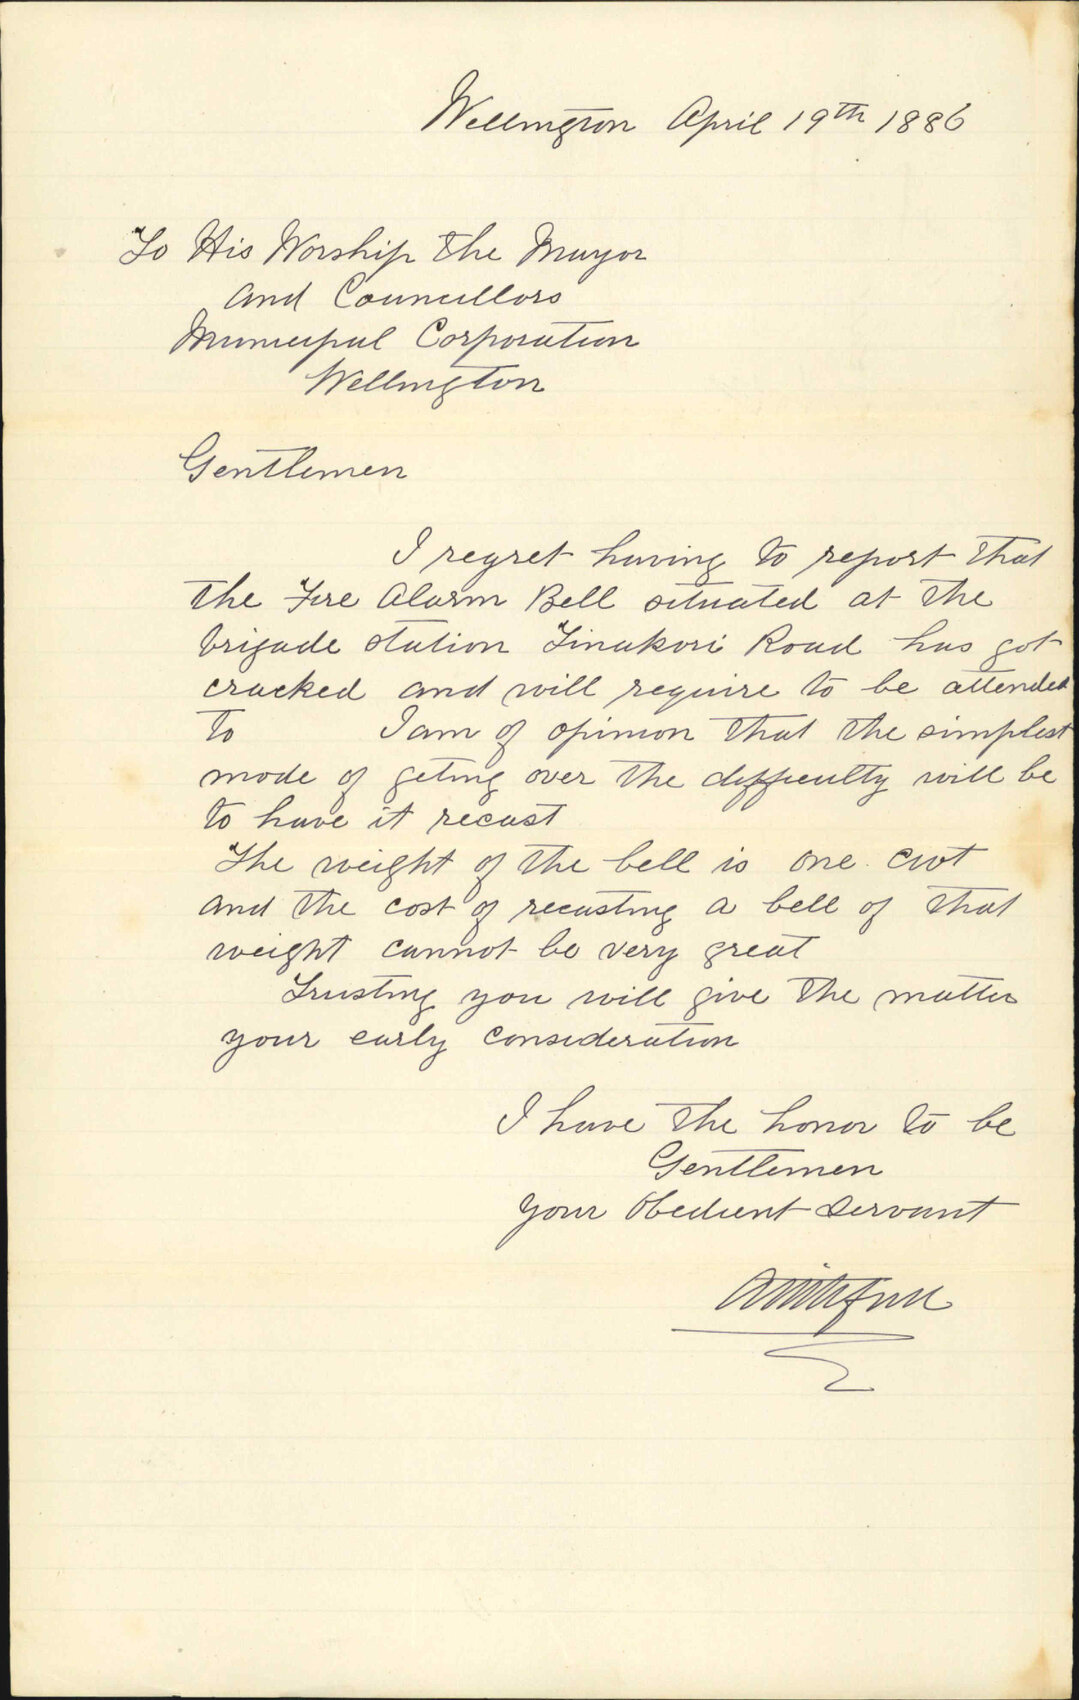 Wellington April 19th 1886
To His Worship the Mayor
and Councillors
Municipal Corporation
Wellington
Gentlemen
I regret having to report that
the Fire Alarm Bell situated at the
brigade station Tinakori Road has got
cracked and will require to be attended
to I am of opinion that the simplest
mode of geting over the difficulty will be
to have it recast
The weight of the bell is one cwt
and the cost of recasting a bell of that
weight cannot be very great
Trusting you will give the matter
your early consideration
I have the honor to be
Gentlemen
your Obedient Servant